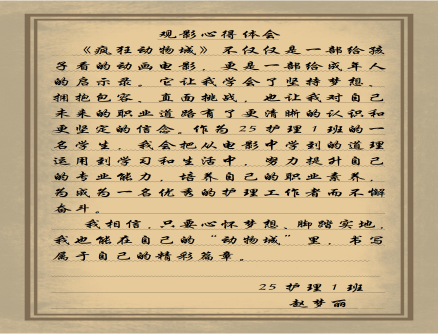 观影心得体会
《疯狂动物城》不仅仅是一部给孩
子看的动画电影，更是一部给成年人
的启示录。它让我学会了坚持梦想、
拥抱包容、直面挑战，也让我对自己
未来的职业道路有了更清晰的认识和
更坚定的信念。作为25护理1班的一
名学生，我会把从电影中学到的道理
运用到学习和生活中，努力提升自己
的专业能力，培养自己的职业素养，
为成为一名优秀的护理工作者而不懈
奋斗。
我相信，只要心怀梦想、脚踏实地，
我也能在自己的“动物城”里，书写
属于自己的精彩篇章。
25护理1班
赵梦丽